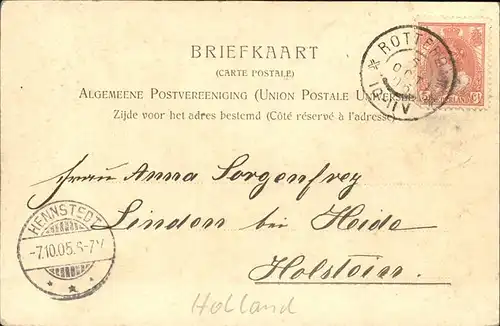 BRIEFKAART
(CARTE POSTALE)
ALGEMEENE POSTVEREENIGING (UNION POSTALE UNIVERSE
Zijde voor het adres bestemd (Côté réservé à l'adresse)
ROTTERDAM
Frau Anna Sorgenfrey
Linden bei Heide
Holstein.
HENNSTEDT
-7.10.05.6-7V
Holland